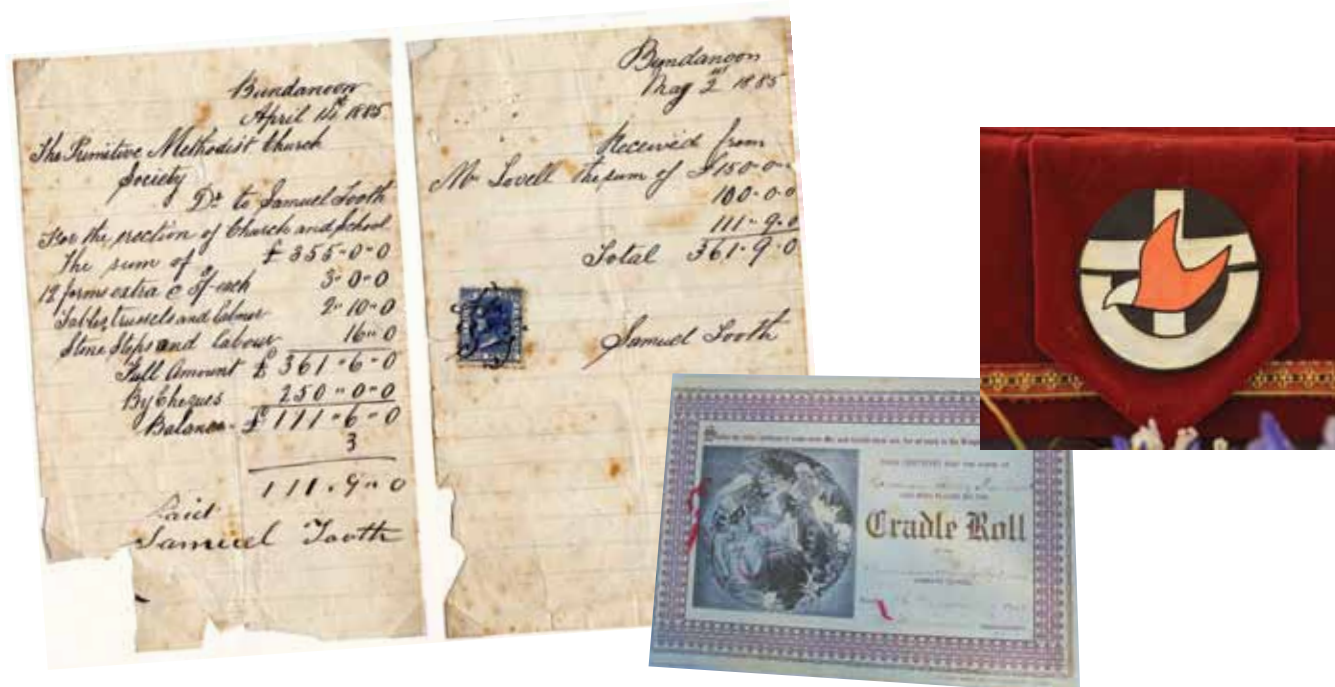 Bundanoon
April 1st 1885
The Primitive Methodist Church
Society
Dr to Samuel Tooth
For the erection of Church and School
The sum of £355-0-0
12 forms extra @ 5/- each 3-0-0
Tables, trussels and labour 2-10-0
Stone Steps and labour 16-0
Full Amount £361-6-0
By Cheques 250-0-0
Balance £111-6-0
3
111-9-0
Paid
Samuel Tooth
Bundanoon
May 2nd 1885
Received from
Mr Lovell the sum of £150-0-0
100-0-0
111-9-0
Total 361-9-0
Samuel Tooth
THIS CERTIFIES THAT THE NAME OF
HAS BEEN PLACED ON THE
Cradle Roll
OF THE
SUNDAY SCHOOL